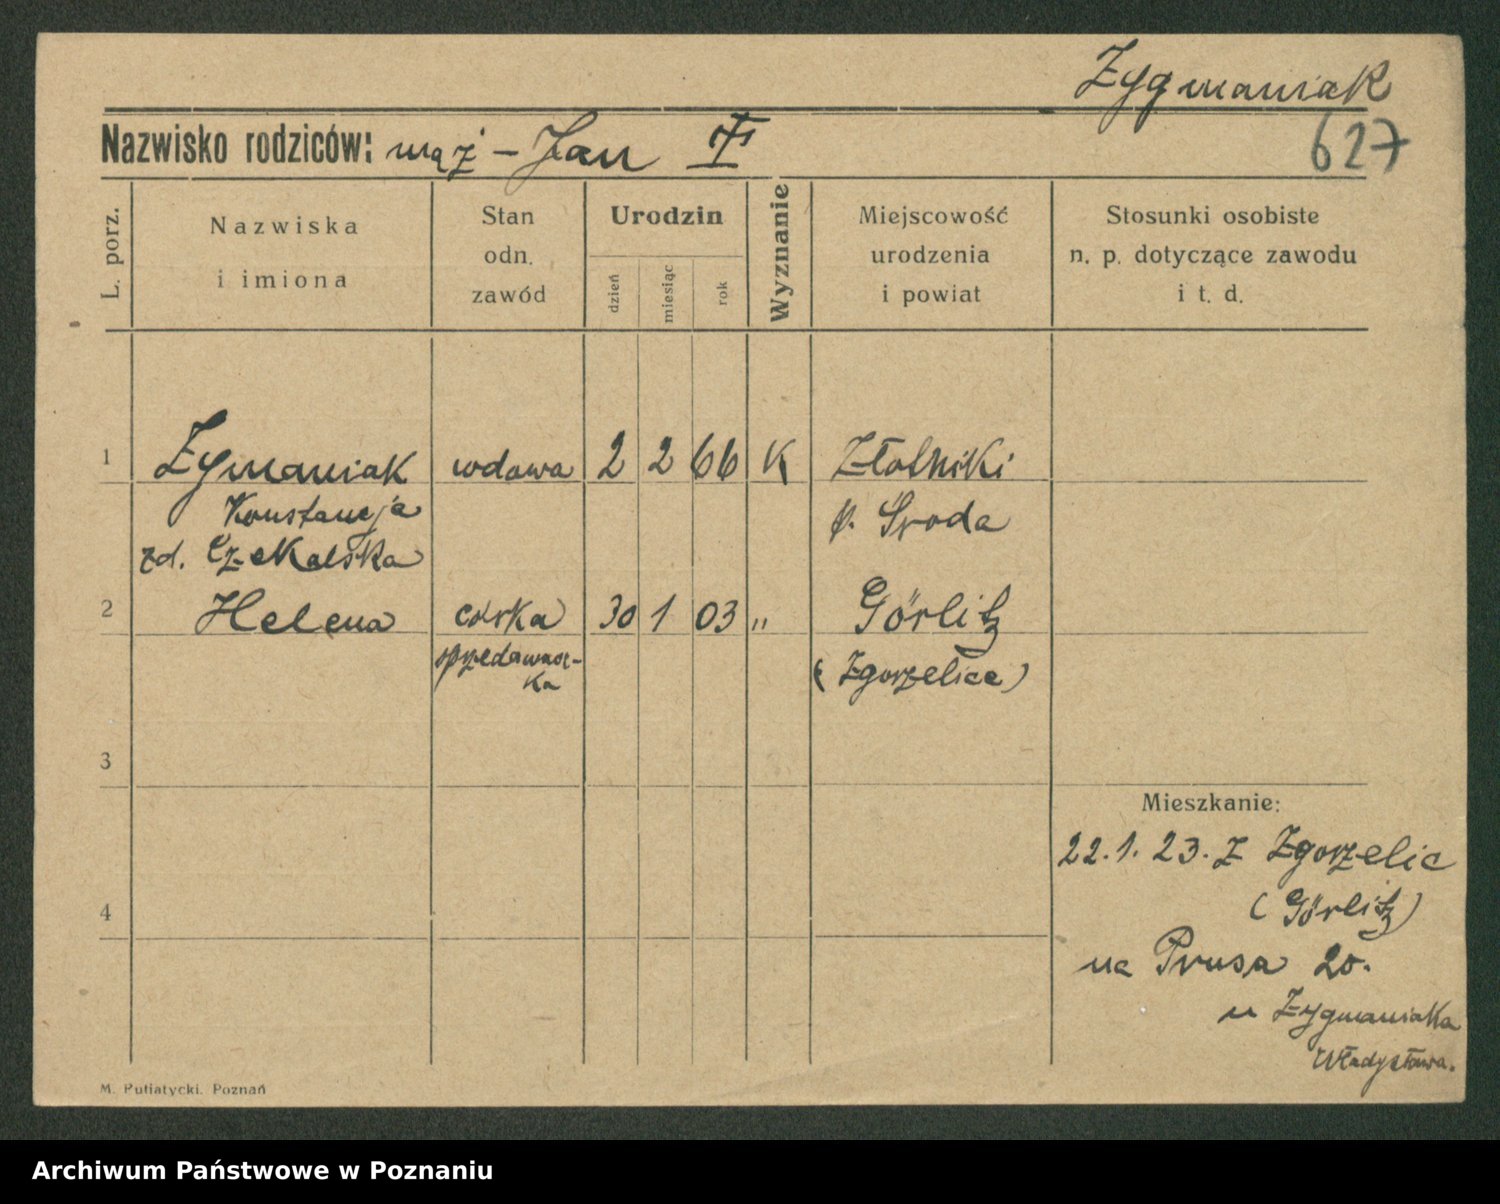 Zygmaniak
627
Nazwisko rodziców: mąż – Jan
L. porz.
Nazwiska
i imiona
Stan
odn.
zawód
Urodzin
dzień
miesiąc
rok
Wyznanie
Miejscowość
urodzenia
i powiat
Stosunki osobiste
n. p. dotyczące zawodu
i t. d.
1 Zymaniak wdowa 2 2 66 K Złolniki
Konstancja p. Środa
zd. Czekalska
2 Helena córka 30 1 03 „ Görlitz
sprzedawacz-
ka
(Zgorzelice)
3
Mieszkanie:
22.1.23. z Zgorzelic
4
(Görlitz)
na Prusa 20.
u Zygmaniaka
Władysława.
M. Putiatycki. Poznań
Archiwum Państwowe w Poznaniu